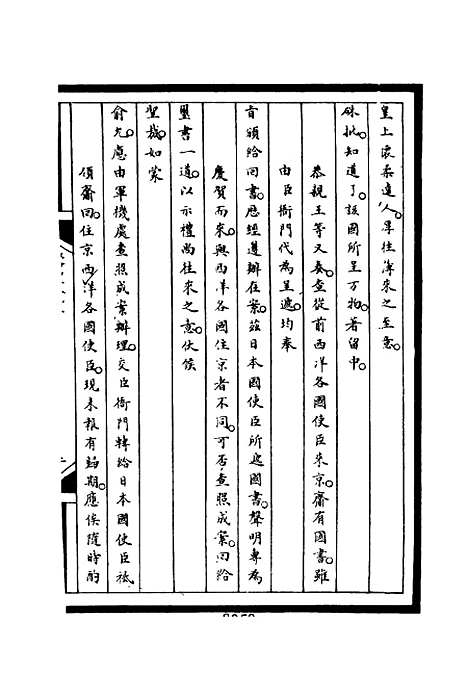 皇上懷柔遠人。厚往薄來之至意。
硃批。知道了。該國所呈方物。著留中。
恭親王等又奏。查從前西洋各國使臣來京。齎有國書。雖
由臣衙門代為呈遞。均奉
旨頒給回書。歷經遵辦在案。茲日本國使臣所遞國書。聲明專為
慶賀而來。與西洋各國住京者不同。可否查照成案。回給
璽書一道。以示禮尚往來之意。伏候
聖裁。如蒙
俞允。應由軍機處查照成案辦理。交臣衙門轉給日本國使臣祗
領齎回。住京西洋各國使臣。現未報有歸期。應俟隨時酌